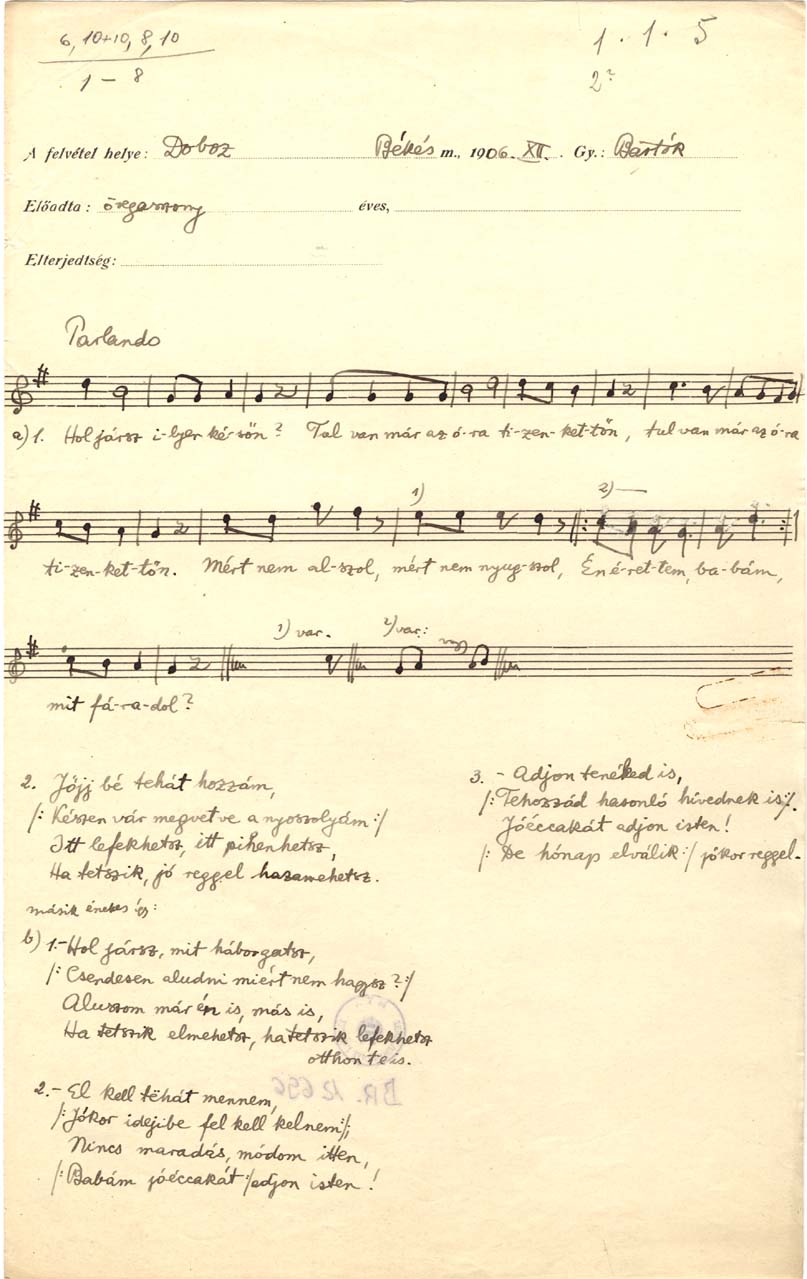 6, 10+10, 8, 10
1 - 8
1 . 1 . 5
2?
A felvétel helye: Doboz Békés m., 1906. XII. Gy.: Bartók
Előadta: öregasszony éves,
Elterjedtség:
Parlando
a) 1. Hol jársz i-lyen ké-sőn? Tul van már az ó-ra ti-zen-ket-tőn, tul van már az ó-ra
1) 2)
ti-zen-ket-tőn. Mért nem al-szol, mért nem nyug-szol, Én é-ret-tem, ba-bám,
1) var. 2) var:
mit fá-ra-dol?
2. Jőjj bé tehát hozzám,
/: Készen vár megvetve a nyoszolyám :/
Itt lefekhetsz, itt pihenhetsz,
Ha tetszik, jó reggel hazamehetsz.
3. - Adjon tenéked is,
/: Tehozzád hasonló hívednek is :/.
Jóéccakát adjon isten!
/: De hónap elválik :/ jókor reggel.
másik énekes így:
b) 1.- Hol jársz, mit háborgatsz,
/: Csendesen aludni miért nem hagysz? :/
Aluszom már én is, más is,
Ha tetszik elmehetsz, ha tetszik lefekhetsz
otthon te is.
2.- El kell tëhát mennem,
/: Jókor idejibe fel kell kelnem :/,
Nincs maradás, módom itten,
/: Babám jóéccakát :/ adjon isten!
BR. 12656